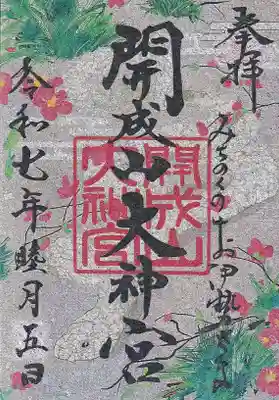 奉拝
みちのくのお伊勢さま
開成山大神宮
開成山
大神宮
令和七年睦月五日